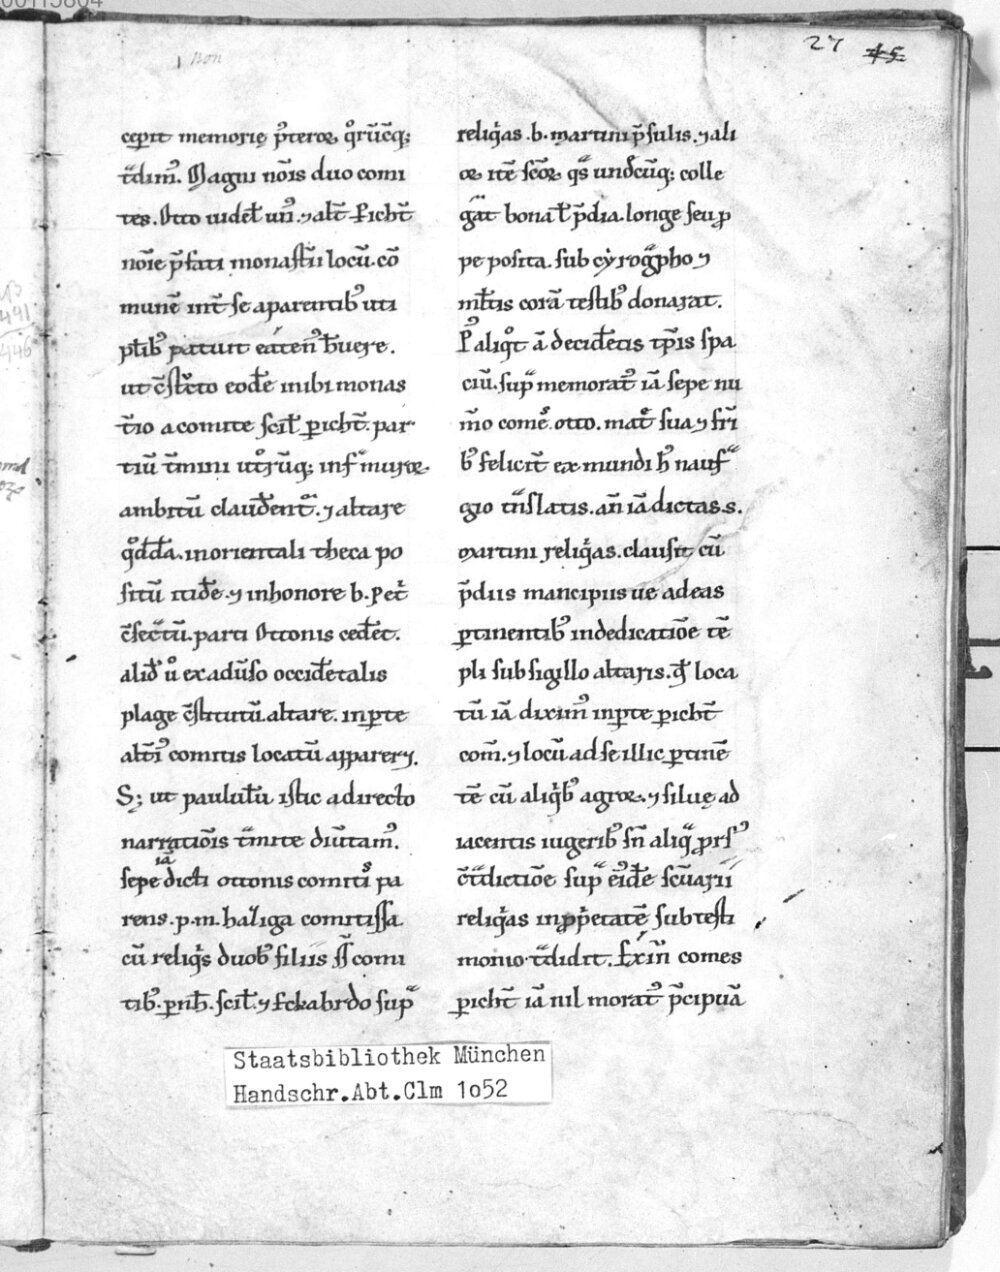 27 45
Non
cepit memorię p̄teroꝝ q̊rūcq;
t̄dim᷒. Magni nōis duo comi
tes. Otto uidet̄ un᷒. ⁊ alt̄ Picht̄
nōie p̄fati monast̄ii locū. cō
munē int̄ se a parentib᷒ uti
pt̄ib᷒ patuit eaten᷒ h̄uere.
ut c̄st̄cto eodē inibi monas
t̄io a comite scił picht̄. par
tiū t̄mini ut̊rūq; infᷓ muroꝝ
ambitū claudent̄. ⁊ altare
q̊ddā. in orientali theca po
sitū itidē. ⁊ in honore b. Pet̊
c̄sec̄tū. parti Ottonis cedet̄.
aliđ ů ex adūso occidētalis
plage c̄stitutū altare. in ꝑte
alt̄i᷒ comitis locatū apparet.
S; ut paululū istic a directo
narratiōis t̄mite diūtam᷒.
sepe iā dicti ottonis comitis pa
rens. p. m. haliga comitissa
cū reliq̊s duob᷒ filiis ss̄ comi
tib᷒. ꝑnh̄. scił. ⁊ Eckab̄do supᷓ
reliq̊as .b. martini p̄sulis. ⁊ ali
oꝝ itē sc̄oꝝ qᷓs undcūq; colle
gāt bona t̄ p̄dia. longe seu ꝓ
pe posita. sub cẏrogᷓpho ⁊
młtis corā testib᷒ donarat.
P᷒ aliq̊t ā decidētis tp̄is spa
ciū. supᷓ memorat᷒ iā sepe nu
m̄o comes. otto. mat̊ sua ⁊ fr̄i
b᷒ felicit̄ ex mundi h᷒ naufᷓ
gio t̄nslatis. an̄ iā dictas .s.
martini reliq̊as. clausit cū
p̄diis mancipiis ue ad eas
ꝑtinentib᷒ in dedicatiōe tē
pli sub sigillo altaris. qᷓ loca
tū iā dixim᷒ in ꝑte picht̄
com̄. ⁊ locū ad se illic ꝑtinē
tē cū aliq̊b᷒ agroꝝ. ⁊ siluę ad
iacentis iugerib᷒ sn̄ aliqᷓ ꝓrs᷒
c̄t̄dictiōe supᷓ ei᷒dē sc̄uarii
reliq̊as in ꝓp̄etatē sub testi
monio t̄didit. Exin̄ comes
picht̄ iā nil morat᷒ p̄cipuā
Staatsbibliothek München
Handschr.Abt.Clm 1o52